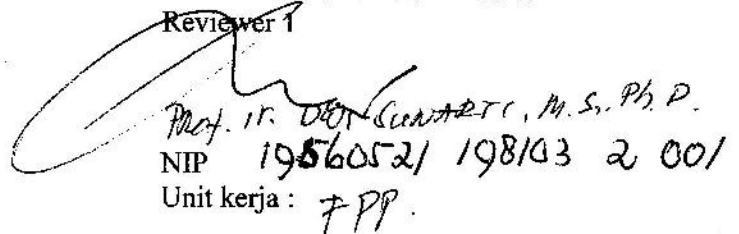 Reviewer 1
Prof. Ir. Dwi Sunarti, M.S., Ph.D.
NIP 19560521 198103 2 001
Unit kerja : FPP.